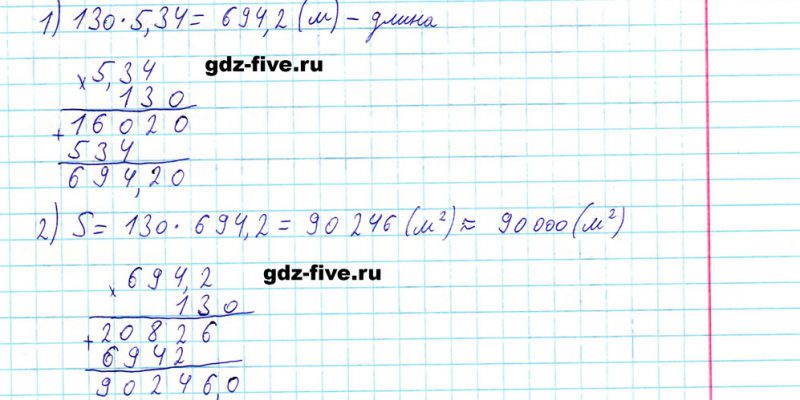 1) 130·5,34 = 694,2 (м) – длина
gdz-five.ru
× 5,34
130
+ 16020
534
694,20
2) S = 130 · 694,2 = 90 246 (м²) ≈ 90 000 (м²)
gdz-five.ru
× 694,2
130
+ 20826
6942
90246,0